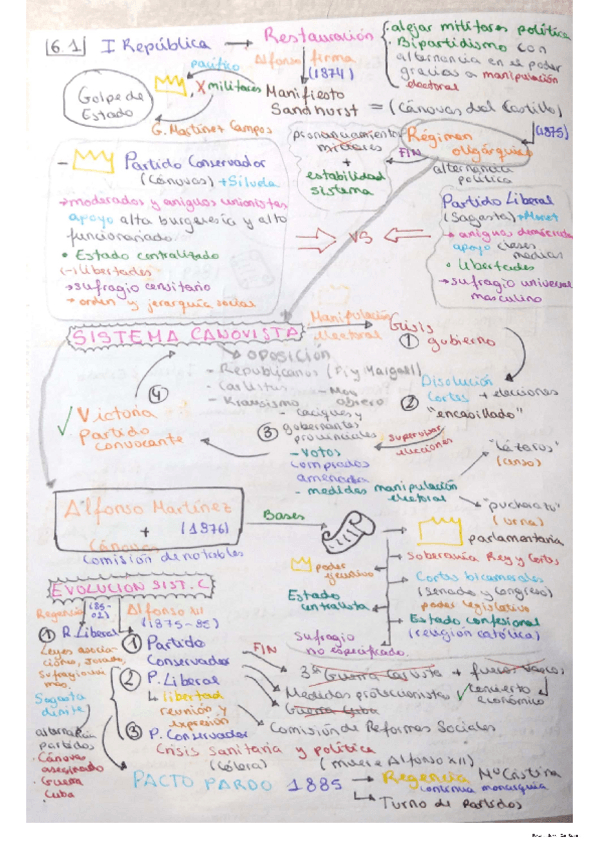 6.1 I República → Restauración
· alejar militares política
· Bipartidismo con
alternancia en el poder
gracias a manipulación
electoral
pacífico
Alfonso firma
(1874)
Golpe de
Estado
X militares
Manifiesto
Sandhurst = (Cánovas del Castillo)
G. Martínez Campos
pronunciamientos
militares
+
estabilidad
sistema
FIN
Régimen
oligárquico
(1875)
alternancia
política
- Partido Conservador
(Cánovas) + Silvela
→ moderados y antiguos unionistas
apoyo alta burguesía y alto
funcionariado
· Estado centralizado
(-) libertades
→ sufragio censitario
→ orden y jerarquía social
VS
Partido Liberal
(Sagasta) + Moret
→ antiguos
apoyo clases
medias
· libertades
→ sufragio universal
masculino
SISTEMA CANOVISTA
Manipulación
electoral
Crisis
① gobierno
Disolución
② Cortes + elecciones
"encasillado"
OPOSICIÓN
- Republicanos (Pi y Margall)
- Carlistas
- Mov. obrero
- Krausismo
④
Victoria
Partido
convocante
③
- caciques y
gobernantes
provinciales
supervisar
elecciones
- Votos
comprados
amenaza
- medidas manipulación
electoral
"lázaros"
(censo)
"pucherazo"
(urna)
Alfonso Martínez
+ (1876)
Cánovas
Comisión de notables
Bases
parlamentaria
poder
ejecutivo
Soberanía Rey y Cortes
Cortes bicamerales
(Senado y Congreso)
poder legislativo
Estado
centralista
Estado confesional
(religión católica)
Sufragio
no especificado
EVOLUCIÓN SIST. C
Regencia (85-02)
Alfonso XII
(1875-85)
① P. Liberal
Leyes asocia-
ciones, jurado,
Sufragio uni
mas.
Sagasta
dimite
alternancia
partidos
· Cánovas
asesinado
· Guerra
Cuba
① Partido
Conservador
FIN
3ª Guerra Carlista + fueros vascos
Medidas proteccionistas
concierto
económico
Guerra Cuba
② P. Liberal
↳ libertad
reunión y
expresión
Comisión de Reformas Sociales
③ P. Conservador
Crisis sanitaria y política
(Cólera) (muere Alfonso XII)
PACTO PARDO 1885 → Regencia Mª Cristina
continua monarquía
↳ Turno de partidos